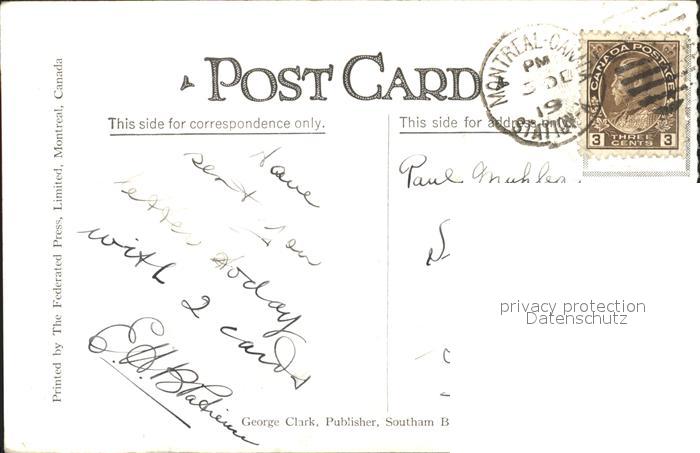 POST CARD
This side for correspondence only.
This side for address only
MONTREAL-CANADA
PM
DE
19
STATION
CANADA POSTAGE
3 THREE CENTS 3
Have
sent you
letter today
with 2 cards
E.H.
Paul
privacy protection
Datenschutz
George Clark, Publisher, Southam B
Printed by The Federated Press, Limited, Montreal, Canada